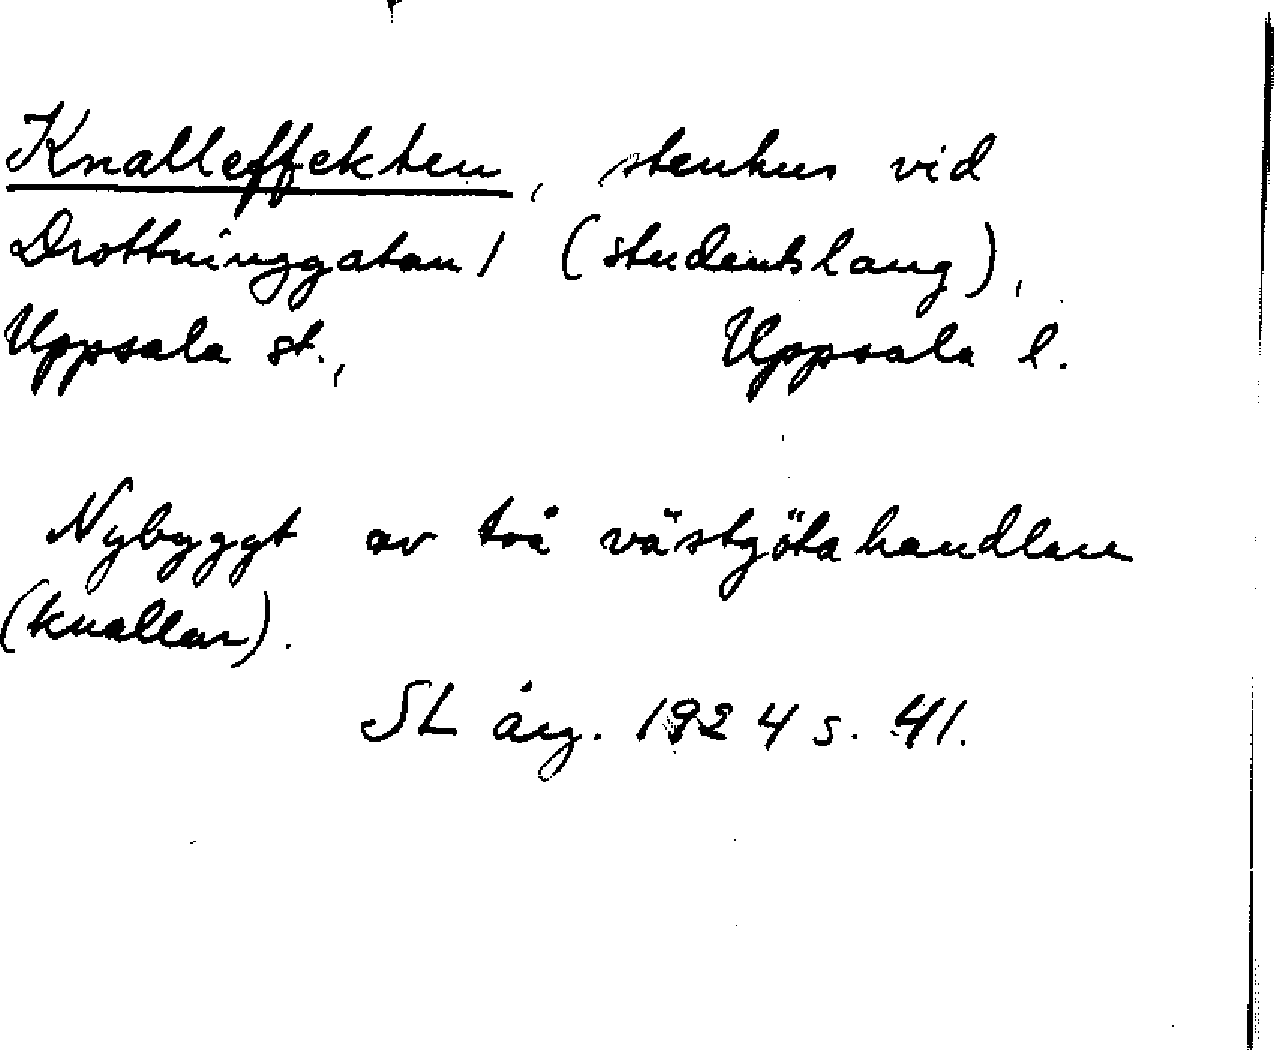 Knalleffekten, stenhus vid
Drottninggatan 1 (studentslang),
Uppsala st., Uppsala l.
Nybyggt av två västgötahandlare
(knallar).
SL årg. 1924 s. 41.